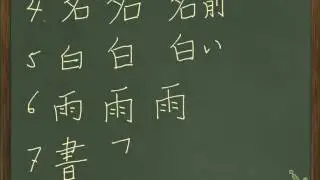 4. 名 名 名前
5 白 白 白い
6 雨 雨 雨
7 書 フ